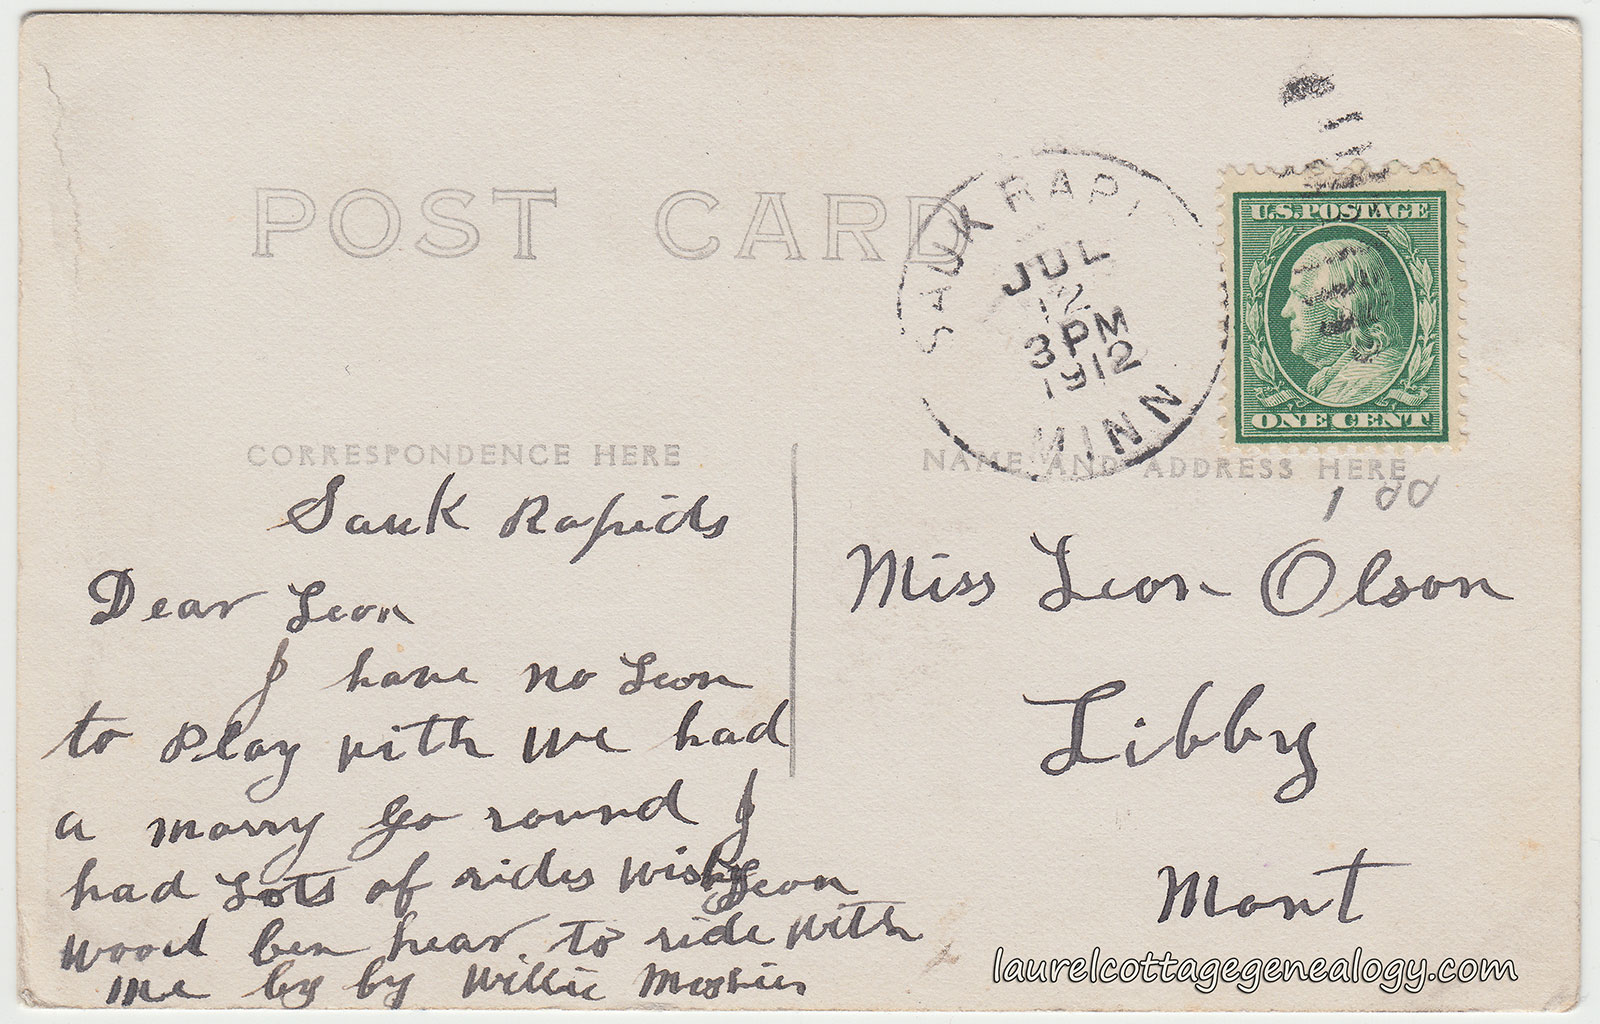 POST CARD
SAUK RAPIDS
JUL
12
3 PM
1912
MINN
U.S. POSTAGE
ONE CENT
CORRESPONDENCE HERE
NAME AND ADDRESS HERE
1 00
Sauk Rapids
Dear Leon
I have no Leon
to Play with We had
a marry go round I
had Lots of rides Wish Leon
wood ben hear to ride with
me by by Willie
Miss Leon Olson
Libby
Mont
laurelcottagegenealogy.com